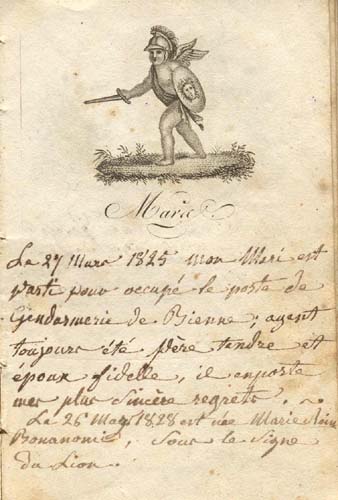 Mars
Le 27 Mars 1825 mon Mari est
parti pour occupé le poste de
Gendarmerie de Bienne ; ayent
toujours été Père tendre et
époux fidelle, il enporte
mes plus sincère regrets.
Le 26 Mars 1828 est née Marie
Bonanomie, Sous le Signe
du Lion.